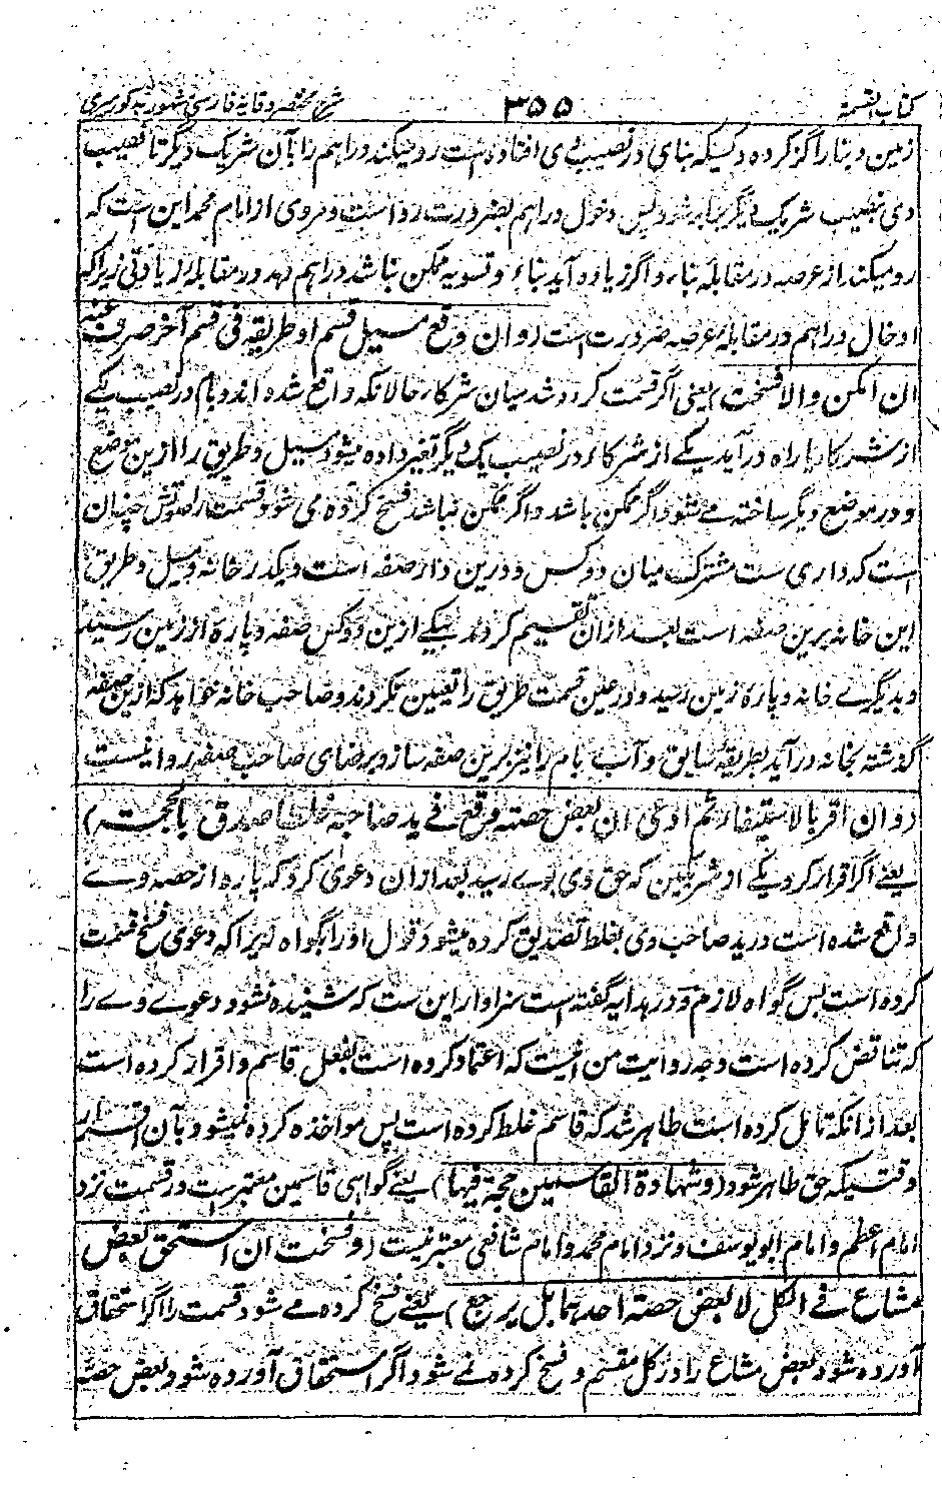 کتاب القسمة ۳۵۵ شرح مختصر وقایة فارسی مشهور به کورسری
زمین و بنا را گز کرده و کسیکه بنای در نصیب وی افتاده است رد میکند دراهم را بآن شریک دیگر تا نصیب
وی بنصیب شریک دیگر برابر شود پس دخول دراهم بضرورت روا است و مروی از امام محمد این ست که
رد میکند از عرصه در مقابله بناء و اگر زیاده آید بناء و تسویه ممکن نباشد دراهم دهد در مقابله زیادتی زیرا که
ادخال دراهم در مقابله عرصه ضرورت است (وان وقع مسیل قسم او طریقه فی قسم آخر صرف عنه
ان امکن والا فسخت) یعنی اگر قسمت کرده شد میان شرکاء حالانکه واقع شده اند و بام در نصیب یکے
از شرکا یا راه در آید یکے از شرکاء در نصیب یک دیگر تغیر داده میشود مسیل و طریق را ازین موضع
و در موضع دیگر ساخته مے شود اگر ممکن باشد و اگر ممکن نباشد فسخ کرده می شود قسمت را صورتش چنان
است که داری ست مشترک میان دو کس و درین دار صفه است و یکدر خانه و مسیل و طریق
این خانه برین صفه است بعد ازان تقسیم کردند بیکے ازین دو کس صفه و پاره از زمین رسید
و بدیگرے خانه و پاره زمین رسید و در عین قسمت طریق را تعیین نکردند و صاحب خانه خواهد که ازین صفه
گذشته بخانه در آید بطریقه سابق و آب بام را نیز برین صفه سازد بی رضای صاحب صفه روا نیست
(وان اقر بالاستیفاء ثم ادعی ان بعض حصته وقع فے ید صاحبه غلطا صدق بالحجة)
یعنے اگر اقرار کرد یکے از شریکین که حق وی بوے رسید بعد ازان دعوی کرد که پاره از حصه وے
واقع شده است در ید صاحب وی بغلط تصدیق کرده میشود قول او را بگواه زیرا که دعوی فسخ قسمت
کرده است پس گواه لازم و در هدایه گفته است سزاوار این ست که شنیده نشود دعوے وے را
که تناقض کرده است وجه روایت متن اینست که اعتماد کرده است بفعل قاسم و اقرار کرده است
بعد از آنکه تامل کرده است ظاهر شد که قاسم غلط کرده است پس مواخذه کرده نمیشود بآن اقرار
وقتیکه حق ظاهر شود (وشهادة القاسمین حجة فیها) یعنے گواهی قاسمین معتبر ست در قسمت نزد
امام اعظم و امام ابویوسف و نزد امام محمد و امام شافعی معتبر نیست (وفسخت ان استحق بعض
مشاع فے الکل لا بعض حصة احدهما بل یرجع) یعنے فسخ کرده مے شود قسمت را اگر استحقاق
آورده شود بعض مشاع را در کل مقسم و فسخ کرده نمے شود اگر استحقاق آورده شود بعض حصه